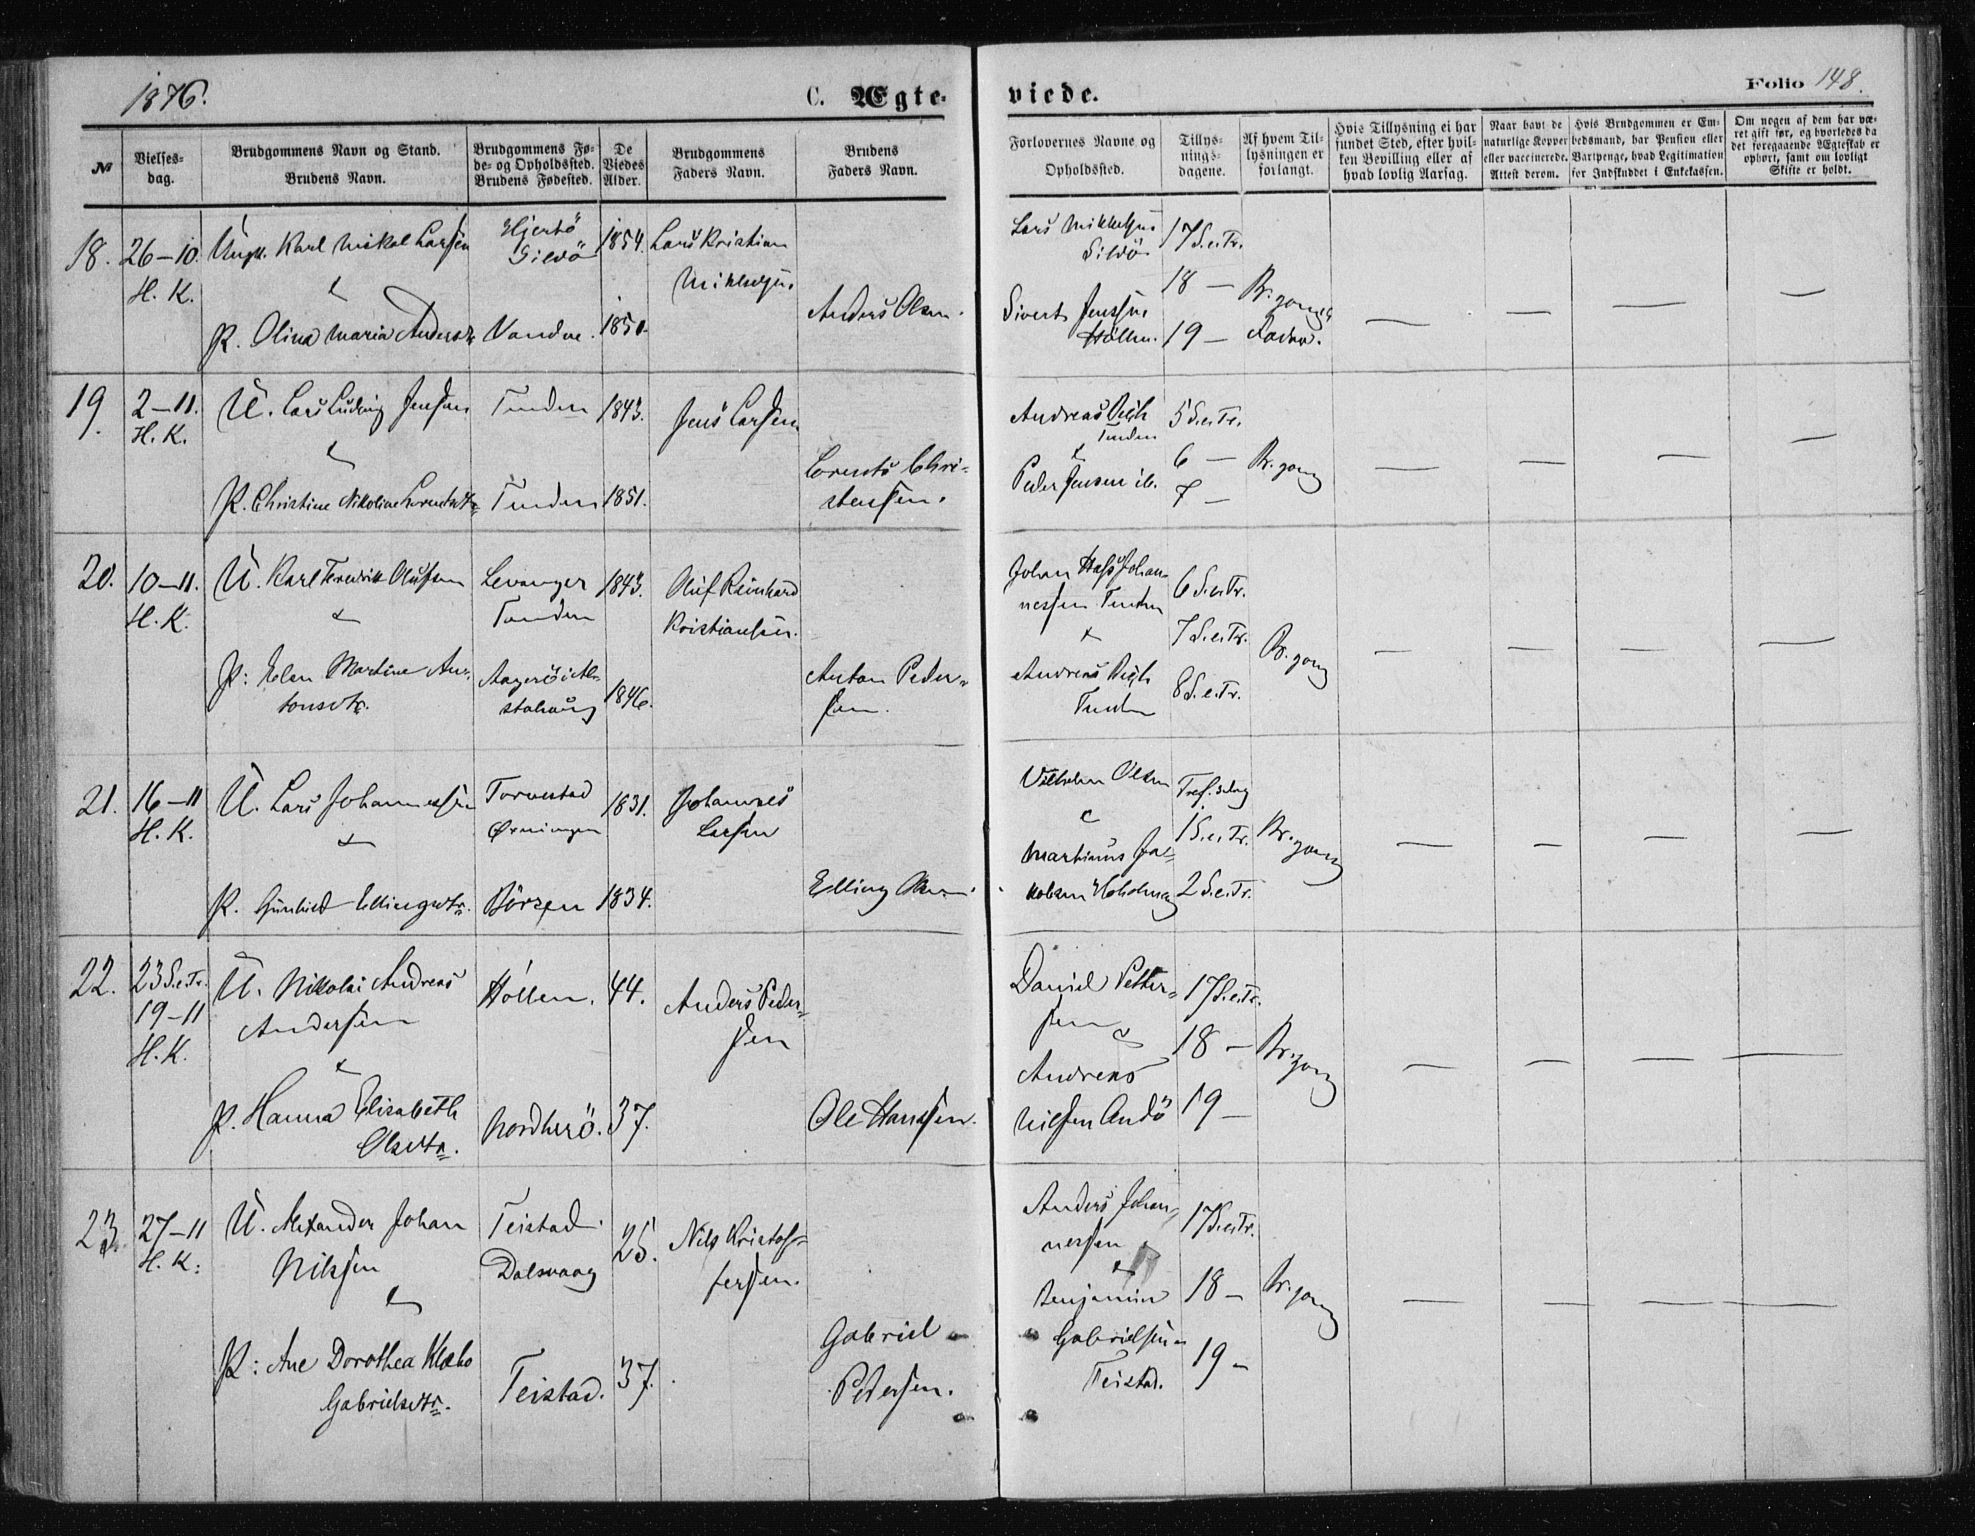 1876.
C. Ægte-
viede.
Folio 148.
№
Vielses-
dag.
Brudgommens Navn og Stand.
Brudens Navn.
Brudgommens Fø-
de- og Opholdssted.
Brudens Fødested.
De
Viedes
Alder.
Brudgommens
Faders Navn.
Brudens
Faders Navn.
Forlovernes Navne og
Opholdssted.
Tillys-
nings-
dagene.
Af hvem Til-
lysningen er
forlangt.
Hvis Tillysning ei har
fundet Sted, efter hvil-
ken Bevilling eller af
hvad lovlig Aarsag.
Naar havt de
naturlige Kopper
eller vaccinerede.
Attest derom.
Hvis Brudgommen er Em-
bedsmand, har Pension eller
Vartpenge, hvad Legitimation
for Indskuddet i Enkekassen.
Om nogen af dem har væ-
ret gift før, og hvorledes da
det foregaaende Ægteskab er
ophørt, samt om lovligt
Skifte er holdt.
18.
26-10.
H. K.
Ungk. Karl Mikal Larsen
&
P. Olina Maria Andersdtr.
Hjertö
Sildö
Vandve.
1854.
1850.
Lars Kristian
Mikkelsen.
Anders Olsen.
Lars Mikkelsen
Sildö
Sivert Jenssen
Höllen.
17 S.e.Tr.
18 —
19 —
Br.gom
— — — —
19.
2-11.
H. K.
U. Lars Ludvig Jensen
&
P. Christine Nikoline Lorentsdtr.
Tenden
Tenden
1843.
1851.
Jens Larsen
Lorents Chri-
stensen.
Andreas
Tenden
&
Peder Jensen ib.
5 S.e.Tr.
6 —
7 —
Br.gom
— — — —
20.
10-11.
H. K.
U. Karl Fredrik Olufsen
&
P: Elen Martine An-
tonsdtr.
Levanger
Tenden
Aagerö i Al-
stahaug
1843.
1846.
Oluf Reinhard
Kristiansen.
Anton Peder-
sen.
Johan Johan-
nessen Tenden
&
Andreas
Tenden
6 S.e.Tr.
7 S.e.Tr.
8 S.e.Tr.
Br.gom
— — — —
21.
16-11
H. K.
U. Lars Johannessen
&
P. Gunhild Ellingsdtr.
Torvestad
Børsen
1831.
1834.
Johannes
Larsen
Elling
Vilhelm Olsen
&
Martinus Ja-
kobsen Hoholmen
Tref.sdag
1 S.e.Tr.
2 S.e.Tr.
Br.gom
— — — —
22.
23 S.e.Tr.
19-11
H. K.
U. Nikolai Andreas
Andersen
&
P. Hanna Elisabeth
Olsdtr.
Höllen.
Nordherö.
44.
37.
Anders Peder-
sen
Ole Hanssen.
Daniel Petter-
sen &
Andreas
Nilsen Andö
17 S.e.Tr.
18 —
19 —
Br.gom
— — — —
23.
27-11
H. K.
U. Alexander Johan
Nilssen
&
P: Ane Dorothea Klæbo
Gabrielsdtr.
Teistad
Dalsvaag
Teistad.
25.
37.
Nils Kristof-
fersen.
Gabriel
Pedersen.
Anders Johan-
nessen
&
Benjamin
Gabrielsen
Teistad.
17 S.e.Tr.
18 —
19 —
Br.gom
— — — —